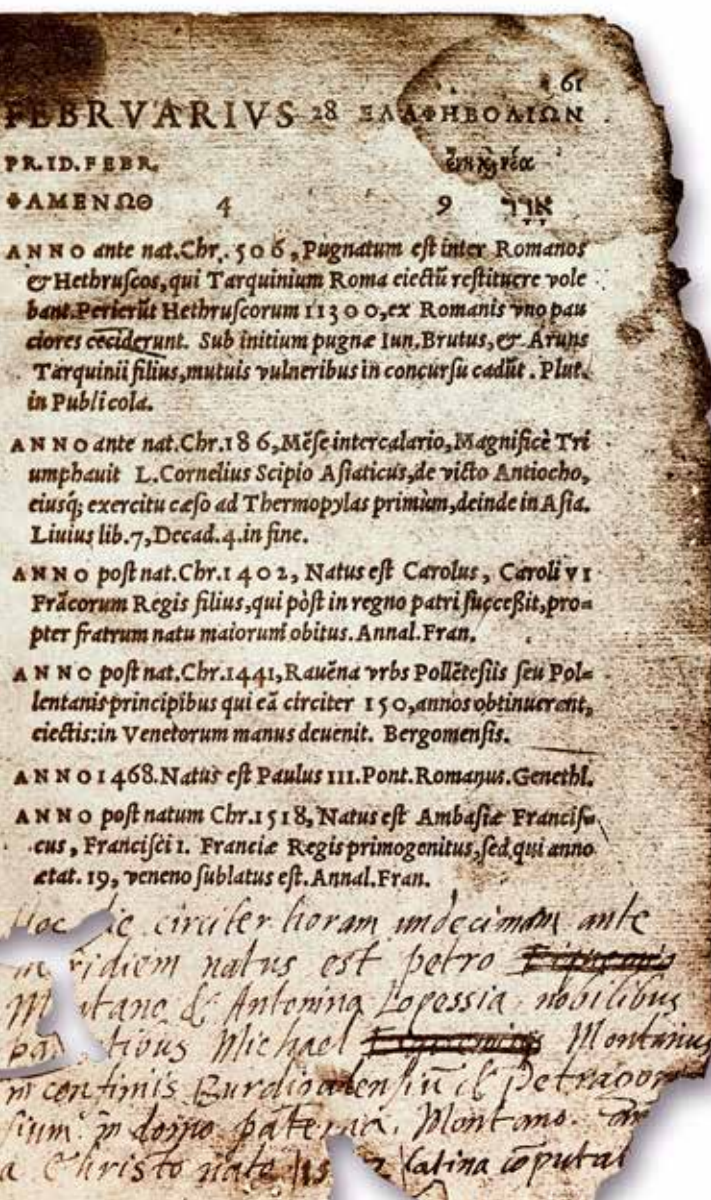 61
FEBRVARIVS 28 ΕΛΑΦΗΒΟΛΙΩΝ
PR. ID. FEBR. ἕνη κὴ νέα
ΦΑΜΕΝΩΘ 4 9 אֲדָר
ANNO ante nat. Chr. 506, Pugnatum est inter Romanos
& Hethruscos, qui Tarquinium Roma eiectū restituere vole
bant. Perierūt Hethruscorum 11300, ex Romanis vno pau
ciores ceciderunt. Sub initium pugnæ Iun. Brutus, & Aruns
Tarquinii filius, mutuis vulneribus in concursu cadūt. Plut.
in Publicola.
ANNO ante nat. Chr. 186, Mēse intercalario, Magnificè Tri
umphauit L. Cornelius Scipio Asiaticus, de victo Antiocho,
eiusq; exercitu cæso ad Thermopylas primùm, deinde in Asia.
Liuius lib. 7, Decad. 4. in fine.
ANNO post nat. Chr. 1402, Natus est Carolus, Caroli VI
Frācorum Regis filius, qui pòst in regno patri successit, pro-
pter fratrum natu maiorum obitus. Annal. Fran.
ANNO post nat. Chr. 1441, Rauēna vrbs Pollētesiis seu Pol-
lentanis principibus qui eā circiter 150, annos obtinuerant,
eiectis: in Venetorum manus deuenit. Bergomensis.
ANNO 1468. Natus est Paulus III. Pont. Romanus. Genethl.
ANNO post natum Chr. 1518, Natus est Ambasiæ Francis-
cus, Francisci I. Franciæ Regis primogenitus, sed qui anno
ætat. 19, veneno sublatus est. Annal. Fran.
Hoc die circiter horam undecimam ante
meridiem natus est petro
Montano & Antonina Lopessia nobilibus
parentibus Michael Montanus
in confinis Burdigalensiū & Petragor
sium in domo paterna. Montano. an
a Christo nato 15 latina cōputat